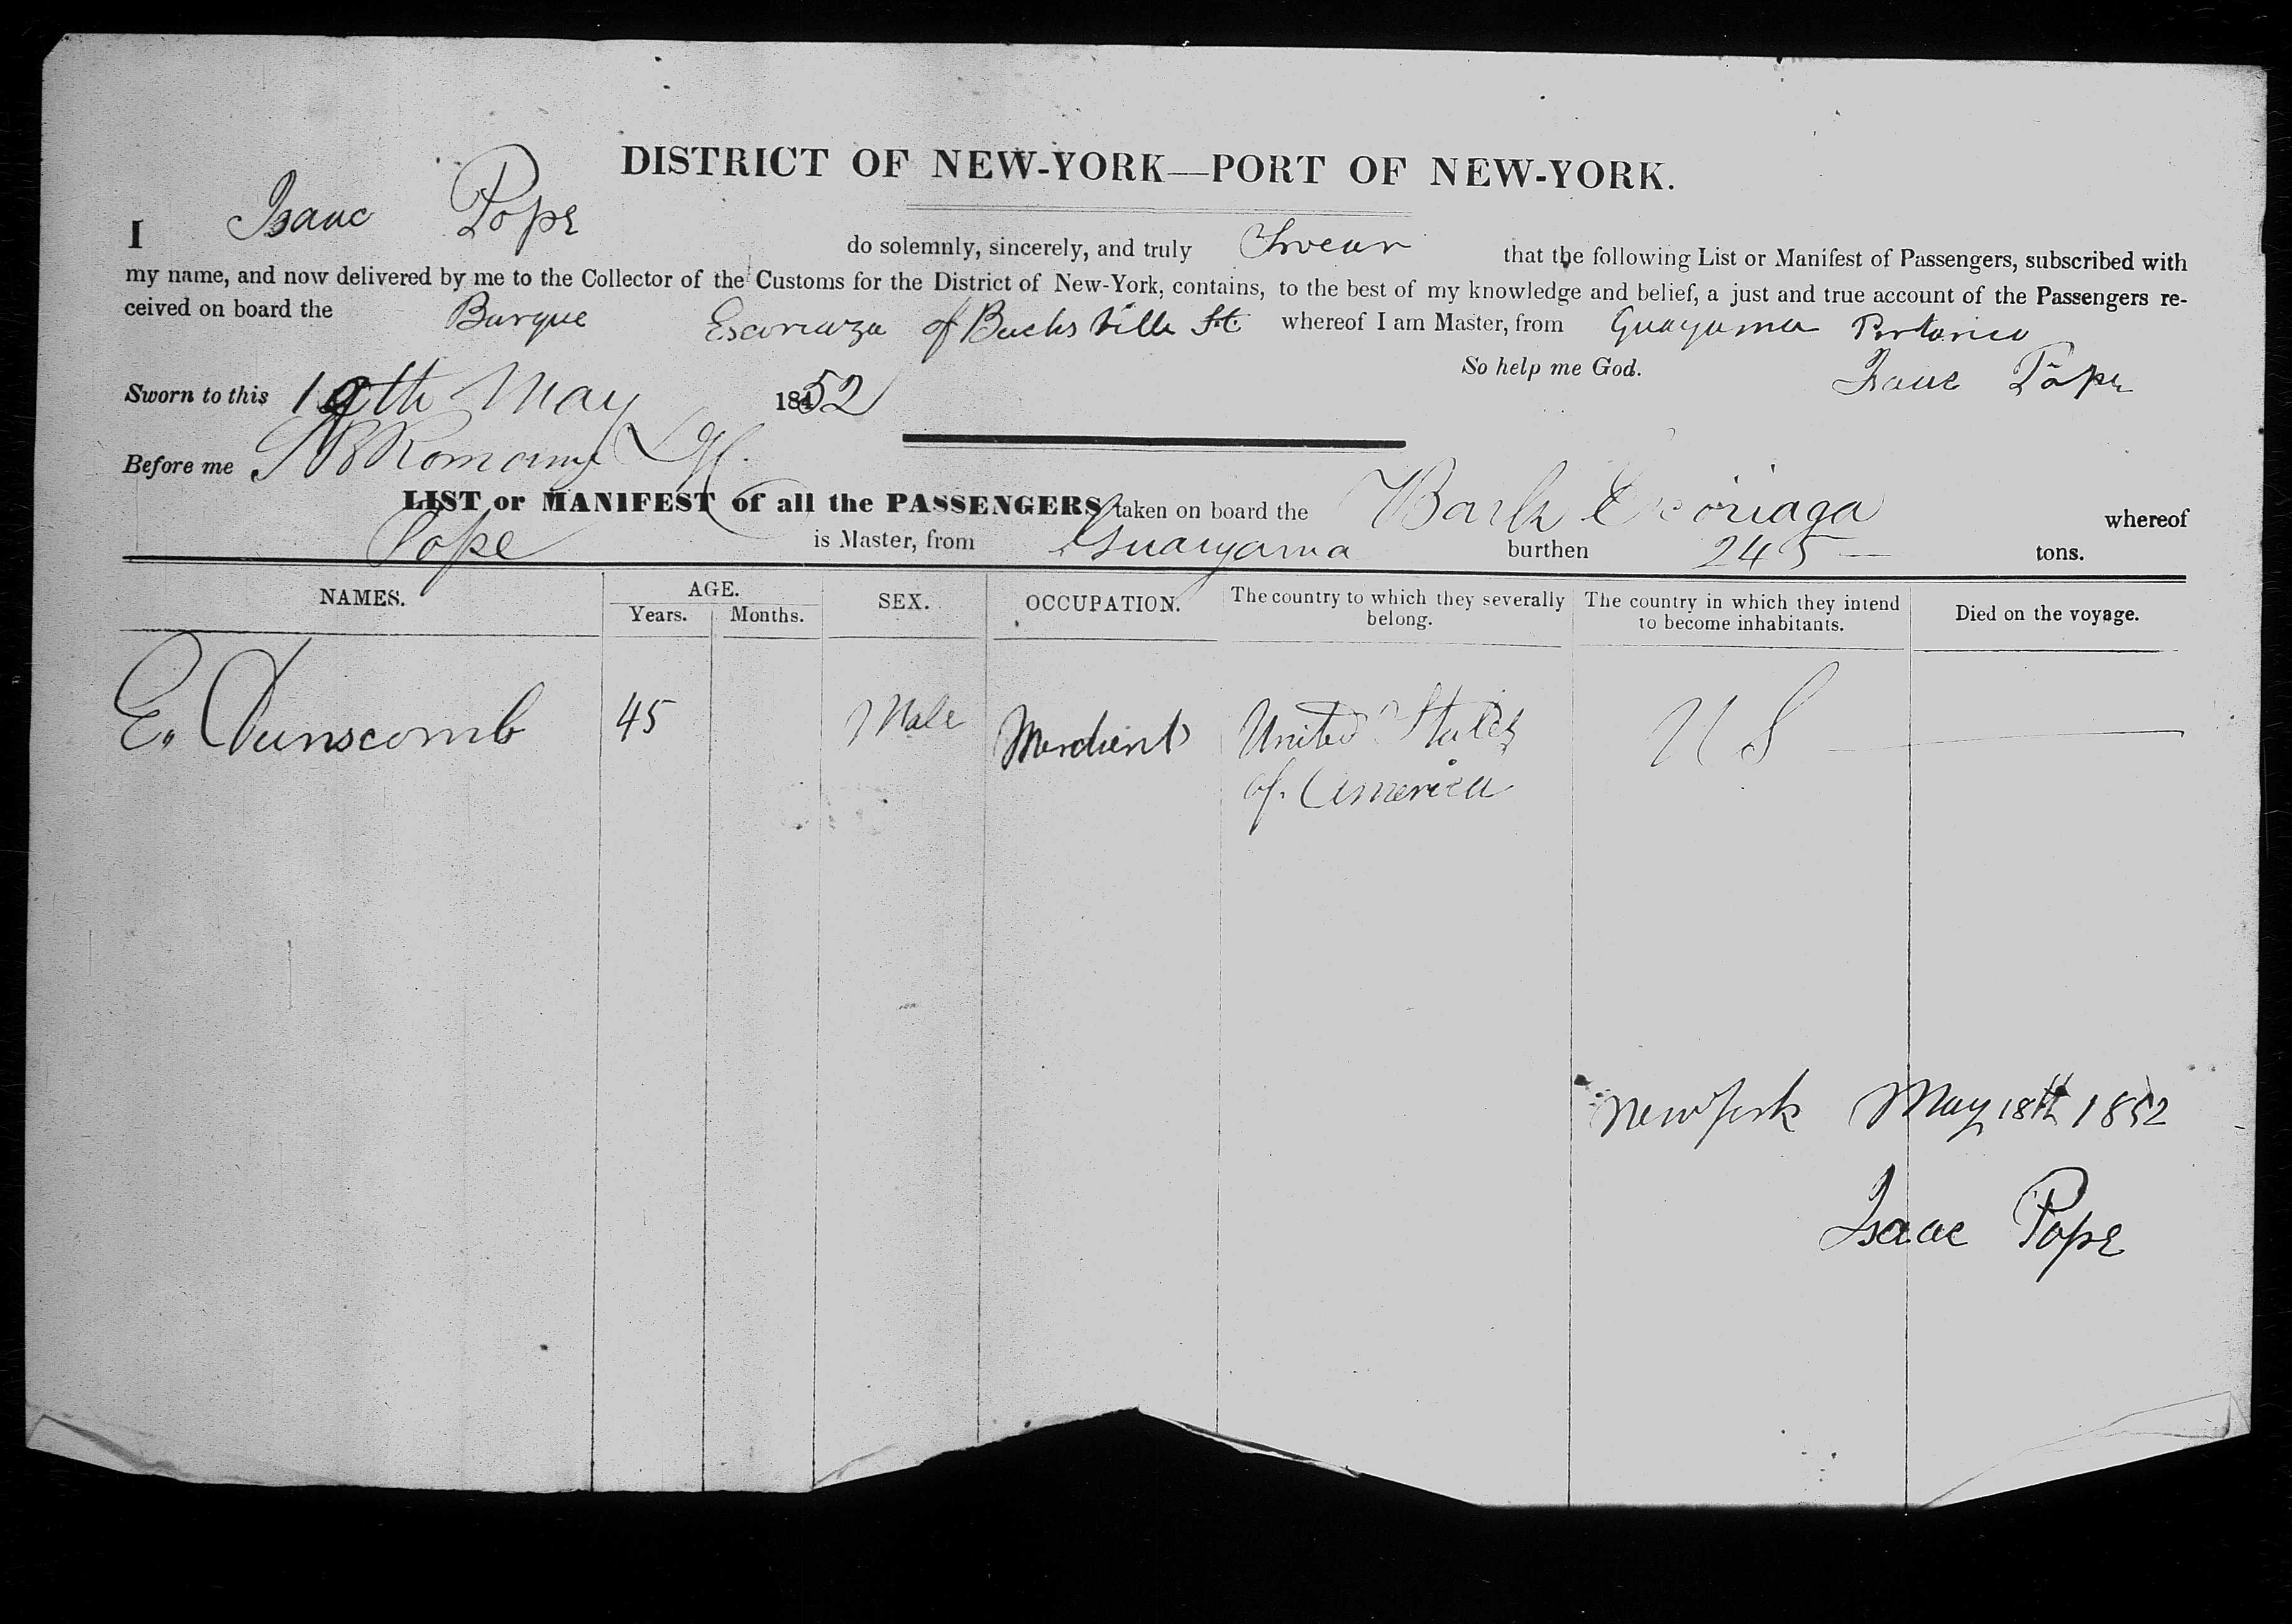 DISTRICT OF NEW-YORK—PORT OF NEW-YORK.
I Isaac Pope do solemnly, sincerely, and truly Swear that the following List or Manifest of Passengers, subscribed with
my name, and now delivered by me to the Collector of the Customs for the District of New-York, contains, to the best of my knowledge and belief, a just and true account of the Passengers re-
ceived on board the Barque Escoriaza of Bucksville whereof I am Master, from Guayama Portorico
So help me God. Isaac Pope
Sworn to this 19th May 1852
Before me
LIST or MANIFEST of all the PASSENGERS taken on board the Bark whereof
Pope is Master, from Guayama burthen 245 tons.
NAMES. AGE. Years. Months. SEX. OCCUPATION. The country to which they severally belong. The country in which they intend to become inhabitants. Died on the voyage.
E. Dunscomb 45 Male Merchent United States U S
of America
New York May 18th 1852
Isaac Pope